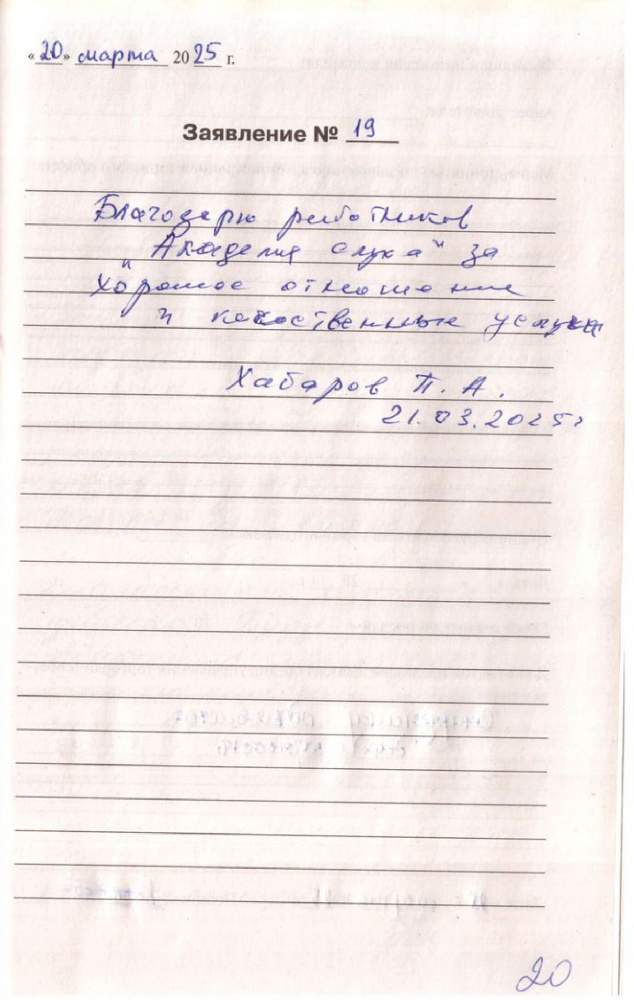 «20» марта 2025 г.
Заявление № 19
Благодарю работников
"Академия слуха" за
хорошее отношение
и качественные услуги
Хабаров П. А.
21.03.2025г
20